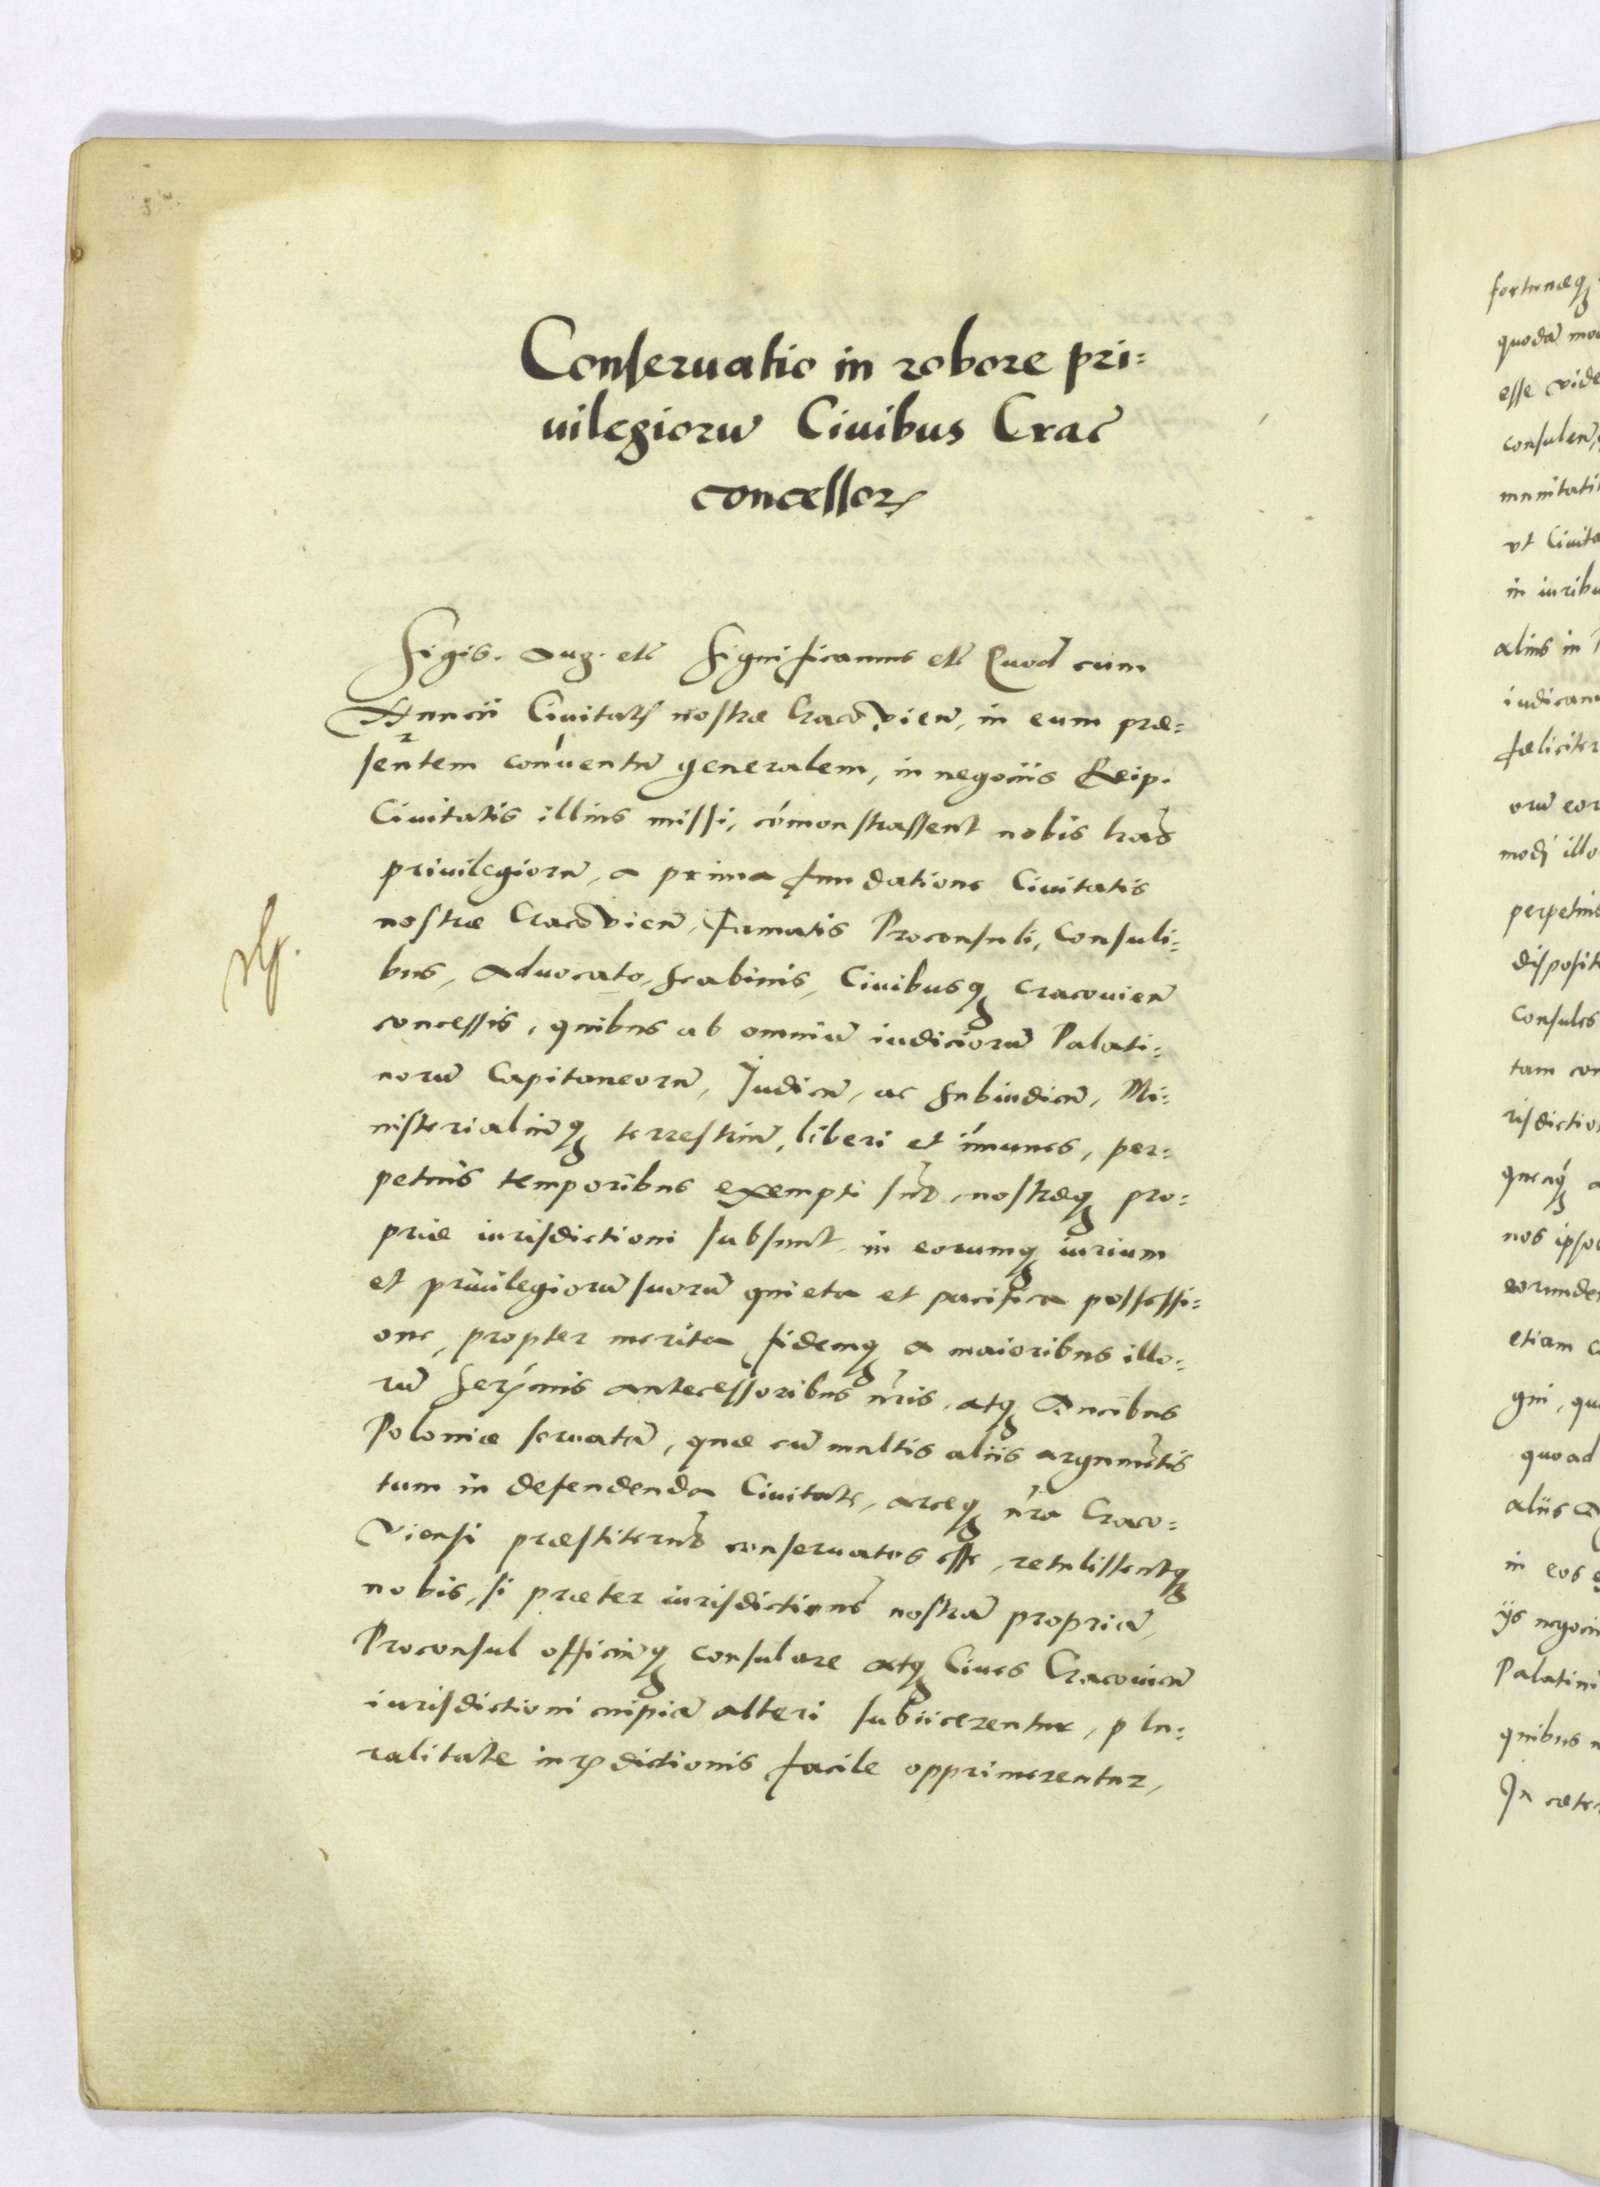 Conseruatio in robore pri=
uilegiorũ Ciuibus Crac̃
concessorꝝ
Sigis. Aug. etc̃ Significamus etc̃ Quod cum
Nuncii Ciuitatis nostræ Cracouien̄, in eum præ=
sentem conuentũ generalem, in negociis Reip.
Ciuitatis illius missi, cõmonstrassent nobis
priuilegiorũ, a prima fundatione Ciuitatis
nostræ Cracouien̄, Famatis Proconsuli, Consuli=
bus, Aduocato, Scabinis, Ciuibusqꝫ Cracouien̄
concessis, quibus ab omniũ iudiciorũ Palati=
norũ Capitaneorũ, Judicũ, ac subiudicũ, Mi=
nisterialiũqꝫ terrestriũ, liberi et im̃unes, per=
petuis temporibus exempti sũt, nostræqꝫ pro=
priæ iurisdictioni subsunt, in eorumqꝫ iurium
et priuilegiorũ suorũ quieta et pacifica possessi=
one, propter merita fidemqꝫ a maioribus illo=
rũ Ser̃mis antecessoribus nr̃is, atqꝫ Ducibus
Poloniæ seruatã, quæ cũ multis aliis argumẽtis
tum in defendenda Ciuitate, arceqꝫ nr̃a Craco=
viensi præstiterũt conseruatos esse, retulissentqꝫ
nobis, si præter iurisdictionẽ nostrã propriã,
Proconsul officiũqꝫ consulare atqꝫ Ciues Cracouien̄
iurisdictioni cuipiã alteri subiicerentur, plu=
ralitate iurisdictionis facile opprimerentur,
fortunæqꝫ
quodã mo
esse vide
consulen̄
munitati
vt Ciuita
in iuribu
aliis in
iudicam
fæliciter
orũ eor
modi illo
perpetuis
disposit
Consules
tam con
risdictio
nos ipso
eorunde
etiam c
gni, qu
quoad
aliis
in eos
iis negoci
Palatini
quibus
In cæter